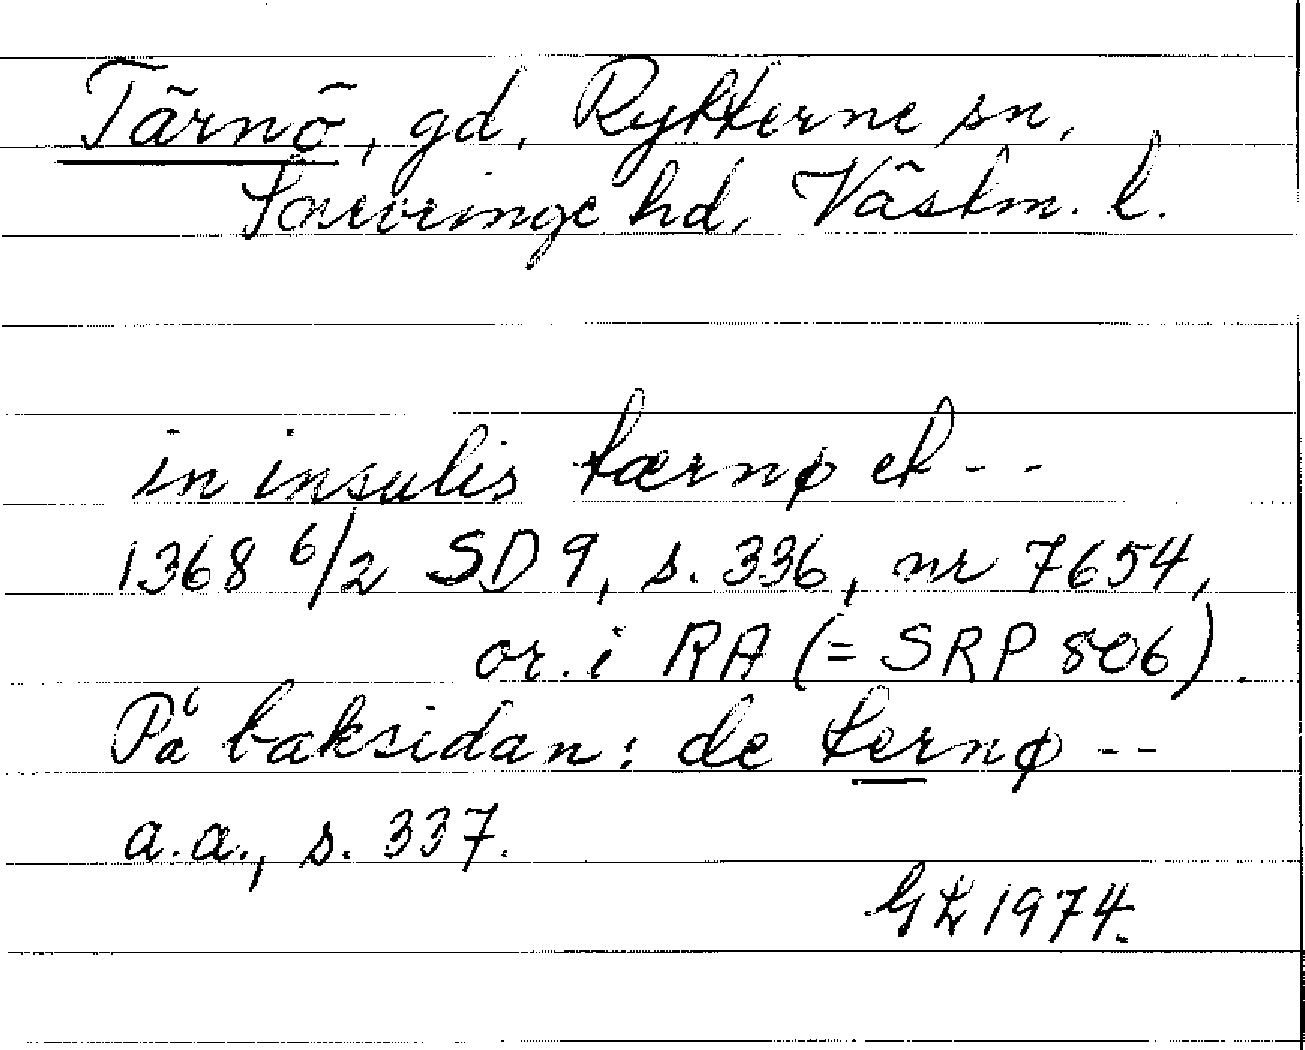 Tärnö, gd, Rytterne sn,
Snevringe hd, Västm. l.
in insulis tærnø et - -
1368 6/2 SD 9, s. 336, nr 7654,
or. i RA (= SRP 806).
På baksidan: de ternø - -
a.a., s. 337.
1974.